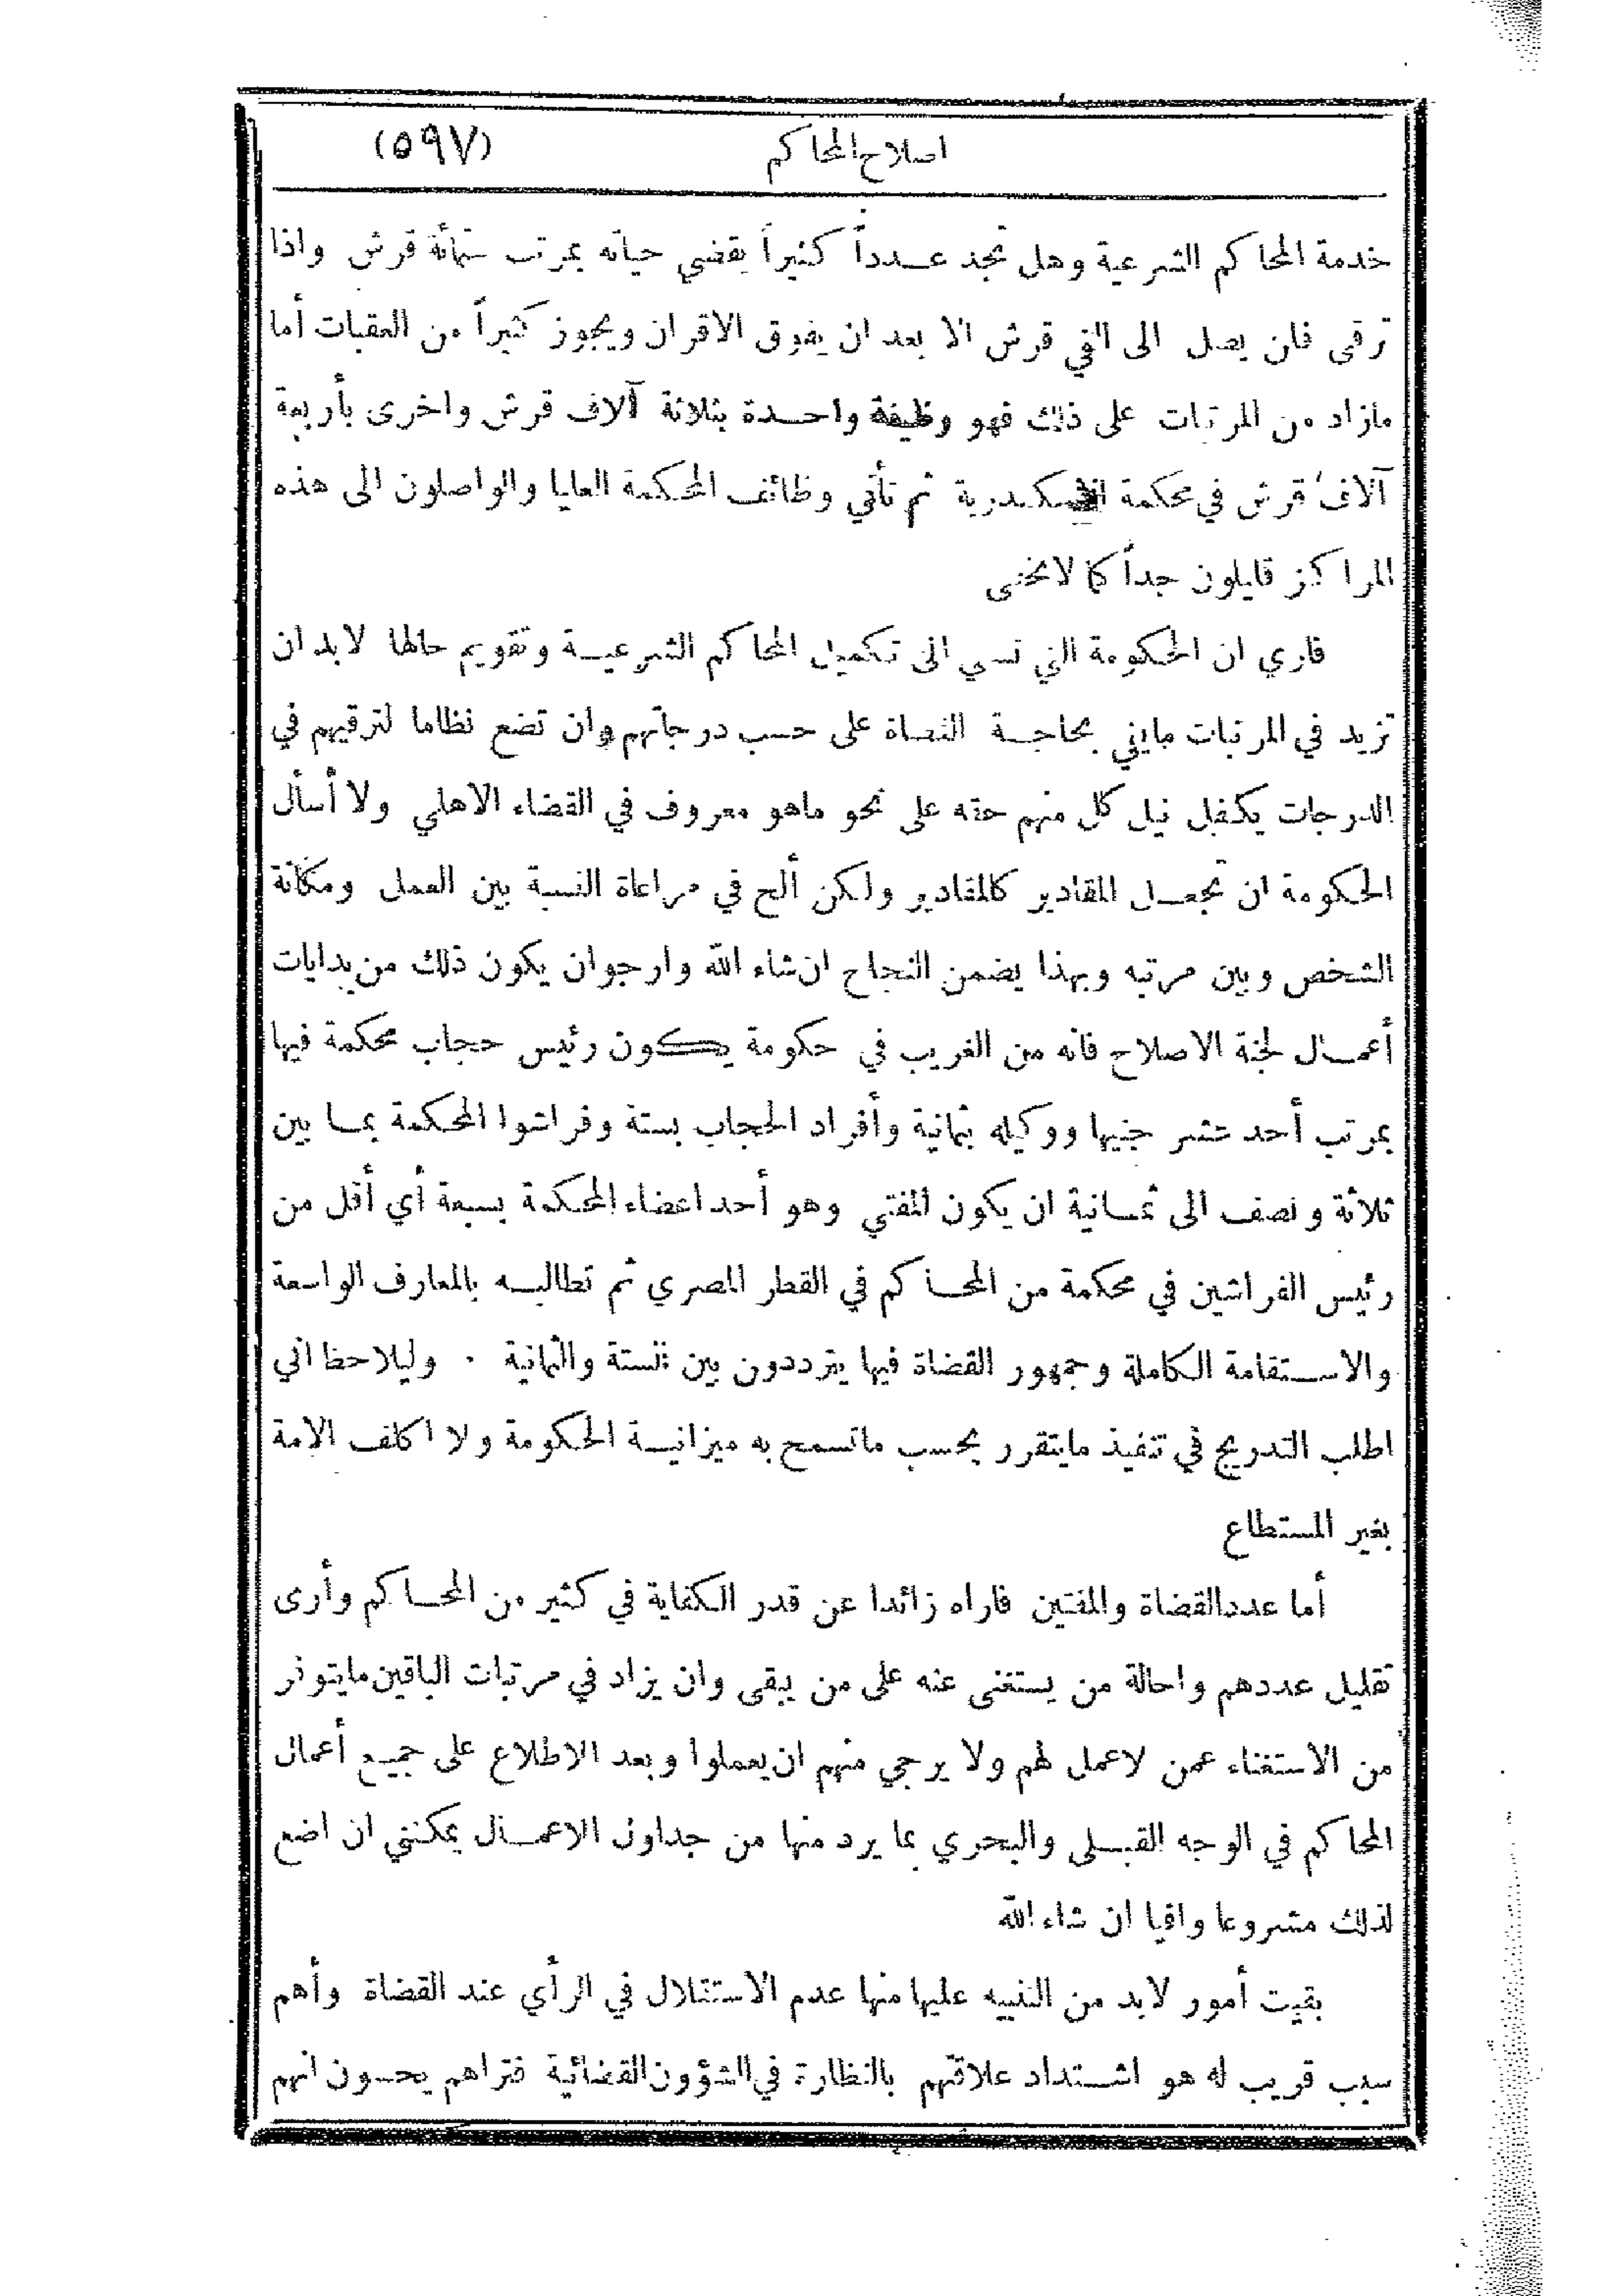 اصلاح المحاكم (٥٩٧)
خدمة المحاكم الشرعية وهل تجد عدداً كثيراً يقضي حياته بمرتب ستمائة قرش واذا
ترقى فلن يصل الى الفي قرش الا بعد ان يفوق الاقران ويجوز كثيراً من العقبات أما
مازاد من المرتبات على ذلك فهو وظيفة واحدة بثلاثة آلاف قرش واخرى بأربعة
آلاف قرش في محكمة اسكندرية ثم تأتي وظائف المحكمة العليا والواصلون الى هذه
المراكز قليلون جداً كما لايخفى
فاري ان الحكومة التي تسعى الى تكميل المحاكم الشرعية وتقويم حالها لابد ان
تزيد في المرتبات مايفي بحاجة القضاة على حسب درجاتهم وان تضع نظاما لترقيهم في
الدرجات يكفل نيل كل منهم حقه على نحو ماهو معروف في القضاء الاهلي ولا أسأل
الحكومة ان تجعل المقادير كالمقادير ولكن ألح في مراعاة النسبة بين العمل ومكانة
الشخص وبين مرتبه وبهذا يضمن النجاح ان شاء الله وارجو ان يكون ذلك من بدايات
أعمال لجنة الاصلاح فانه من الغريب في حكومة يكون رئيس حجاب محكمة فيها
بمرتب أحد عشر جنيها ووكيله بثمانية وأفراد الحجاب بستة وفراشوا المحكمة بما بين
ثلاثة ونصف الى ثمانية ان يكون المفتي وهو أحد اعضاء المحكمة بسبعة أي أقل من
رئيس الفراشين في محكمة من المحاكم في القطر المصري ثم تطالبه بالمعارف الواسعة
والاستقامة الكاملة وجمهور القضاة فيها يترددون بين الستة والثمانية . وليلاحظ اني
اطلب التدريج في تنفيذ مايتقرر بحسب ماتسمح به ميزانية الحكومة ولا اكلف الامة
بغير المستطاع
أما عدد القضاة والمفتين فاراه زائدا عن قدر الكفاية في كثير من المحاكم وأرى
تقليل عددهم واحالة من يستغنى عنه على من يبقى وان يزاد في مرتبات الباقين مايتوفر
من الاستغناء عمن لاعمل لهم ولا يرجي منهم ان يعملوا وبعد الاطلاع على جميع أعمال
المحاكم في الوجه القبلي والبحري بما يرد منها من جداول الاعمال يمكنني ان اضع
لذلك مشروعا وافيا ان شاء الله
بقيت أمور لابد من التنبيه عليها منها عدم الاستقلال في الرأي عند القضاة وأهم
سبب قريب له هو اشتداد علاقتهم بالنظارة في الشؤون القضائية فتراهم يحسون انهم